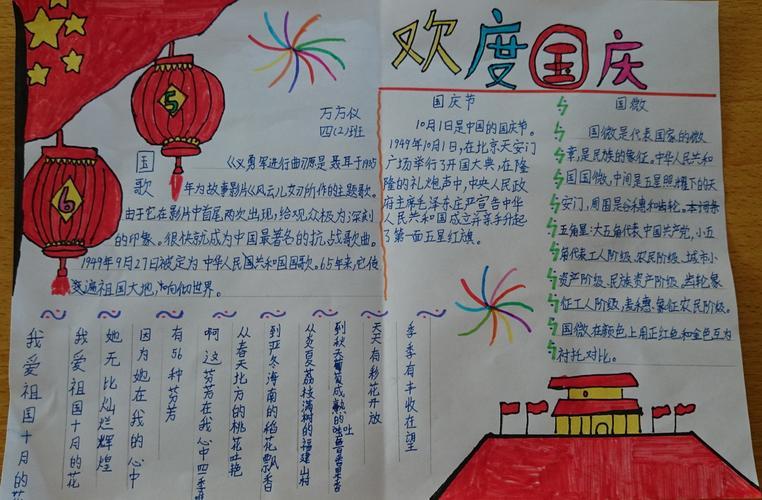 欢度国庆
万方仪
四(2)班
5
6
国歌
《义勇军进行曲》原是聂耳于1935
年为故事影片《风云儿女》所作的主题歌。
由于它在影片中首尾两次出现，给观众极为深刻
的印象。很快就成为中国最著名的抗战歌曲。
1949年9月27日被定为中华人民国共和国国歌。65年来，它传
变遍祖国大地，响彻世界。
国庆节
10月1日是中国的国庆节。
1949年10月1日，在北京天安门
广场举行了开国大典，在隆
隆的礼炮声中，中央人民政
府主席毛泽东庄严宣告中华
人民共和国成立并亲手升起
了第一面五星红旗。
国徽
国徽是代表国家的徽
章，是民族的象征。中华人民共和
国国徽，中间是五星照耀下的天
安门，周围是谷穗和齿轮。本词条
五角星：大五角代表中国共产党，小五
角代表工人阶级、农民阶级、城市小
资产阶级、民族资产阶级，齿轮象
征工人阶级，麦穗象征农民阶级。
国徽在颜色上用正红色和金色互为
衬托对比。
季季有丰收在望
天天有彩花开放
到秋天黄成熟的吐鲁番
从炎夏荔枝满树的福建山村
到亚冬海南的稻花飘香
从春天北方的桃花吐艳
啊这芬芳在我心中四季
有56种芬芳
因为她在我的心中
她无比灿烂辉煌
我爱祖国十月的花
我爱祖国十月的花